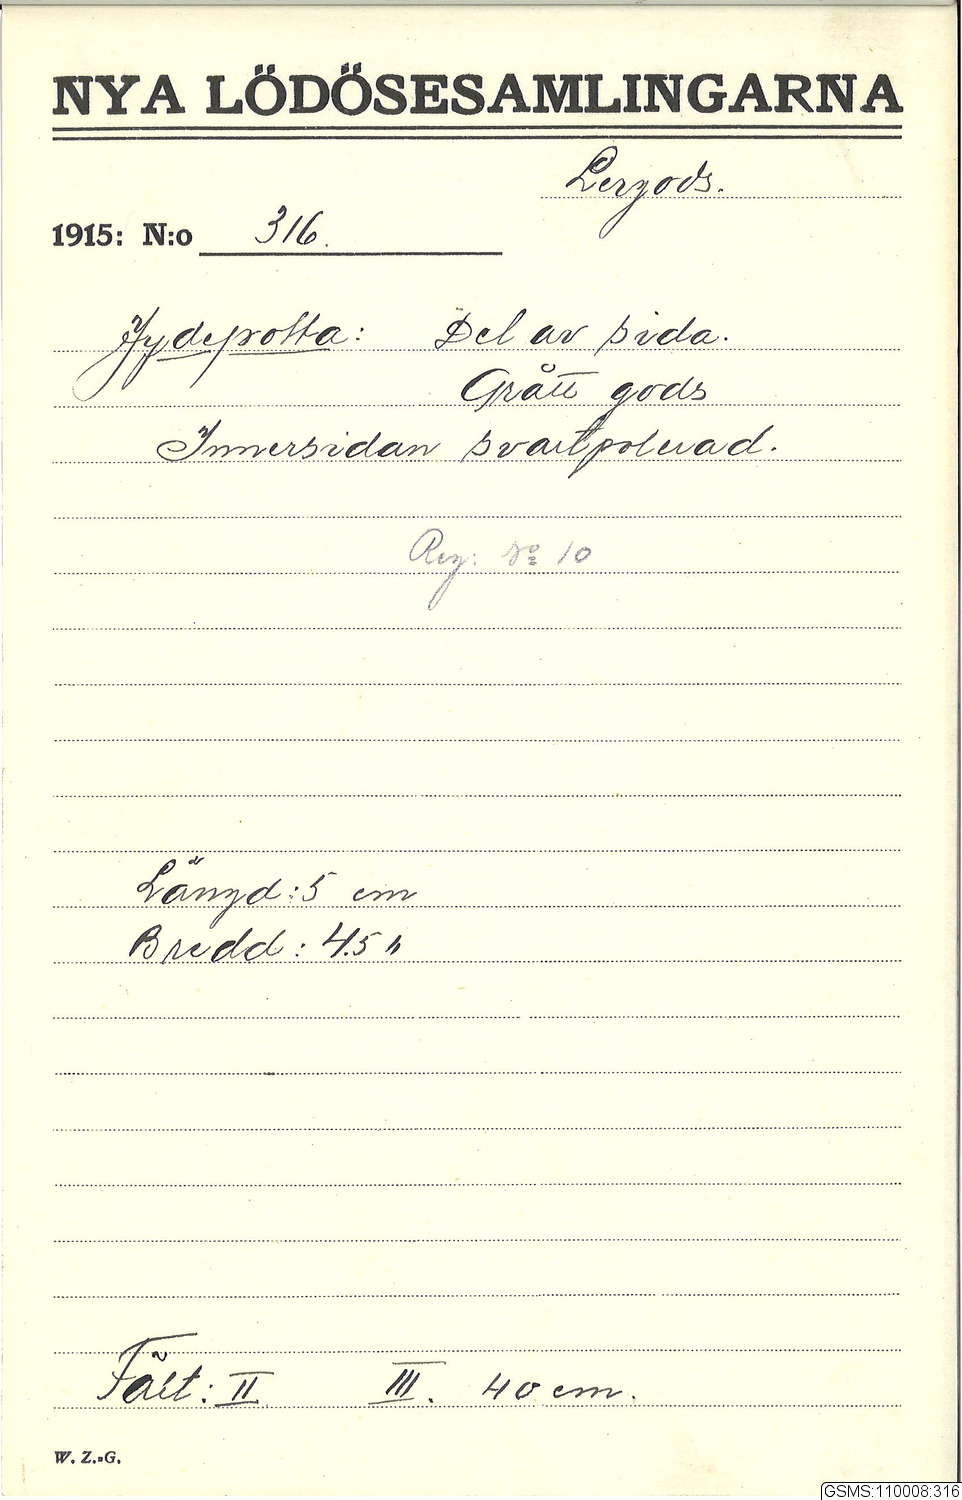 NYA LÖDÖSESAMLINGARNA
Lergods.
1915: N:o 316.
Jydepotta: Del av sida.
Grått gods
Innersidan svartpolerad.
Reg: No 10
Längd: 5 cm
Bredd: 4.5 "
Fält: II III. 40 cm.
W. Z.-G.
GSMS:110008:316